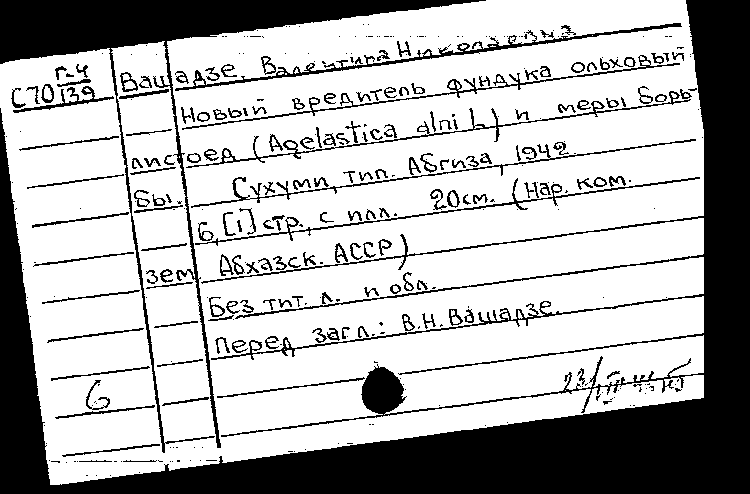 Г-4
С70 139
Вашадзе, Валентина Николаевна
Новый вредитель фундука ольховый
листоед (Agelastica alni L) и меры борь-
бы. Сухуми, тип. Абгиза, 1942
6, [1] стр., с илл. 20см. (Нар. ком.
зем Абхазск. АССР)
Без тит. л. и обл.
Перед загл.: В.Н. Вашадзе.
6
23/III